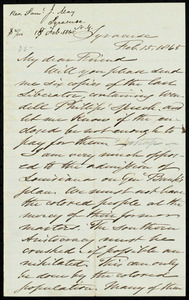 Rev. Sam'l J. May
Syracuse
15 Feb. 1865
Syracuse
Feb. 15. 1865
My dear Friend
Will you please send
me six copies of the last
Liberator, containing Wen-
dell Phillips' speech, and
let me know if the en-
closed be not enough to
pay for them
I am very much opposed
to the admission of
Louisiana on Gen Banks
plan. We must not have
the colored people at the
mercy of their former
masters. The Southern
Aristocracy must be
crushed if possible an-
nihilated. This can only
be done by the colored
population. Many of them